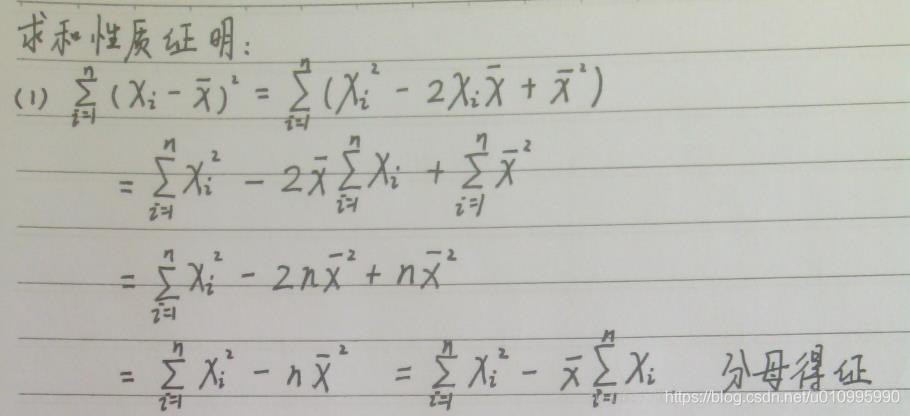 求和性质证明:
(1) $\sum_{i=1}^{n} (x_i - \bar{x})^2 = \sum_{i=1}^{n} (x_i^2 - 2x_i\bar{x} + \bar{x}^2)$
$= \sum_{i=1}^{n} x_i^2 - 2\bar{x} \sum_{i=1}^{n} x_i + \sum_{i=1}^{n} \bar{x}^2$
$= \sum_{i=1}^{n} x_i^2 - 2n\bar{x}^2 + n\bar{x}^2$
$= \sum_{i=1}^{n} x_i^2 - n\bar{x}^2 = \sum_{i=1}^{n} x_i^2 - \bar{x} \sum_{i=1}^{n} x_i$ 分母得证
https://blog.csdn.net/u010995990